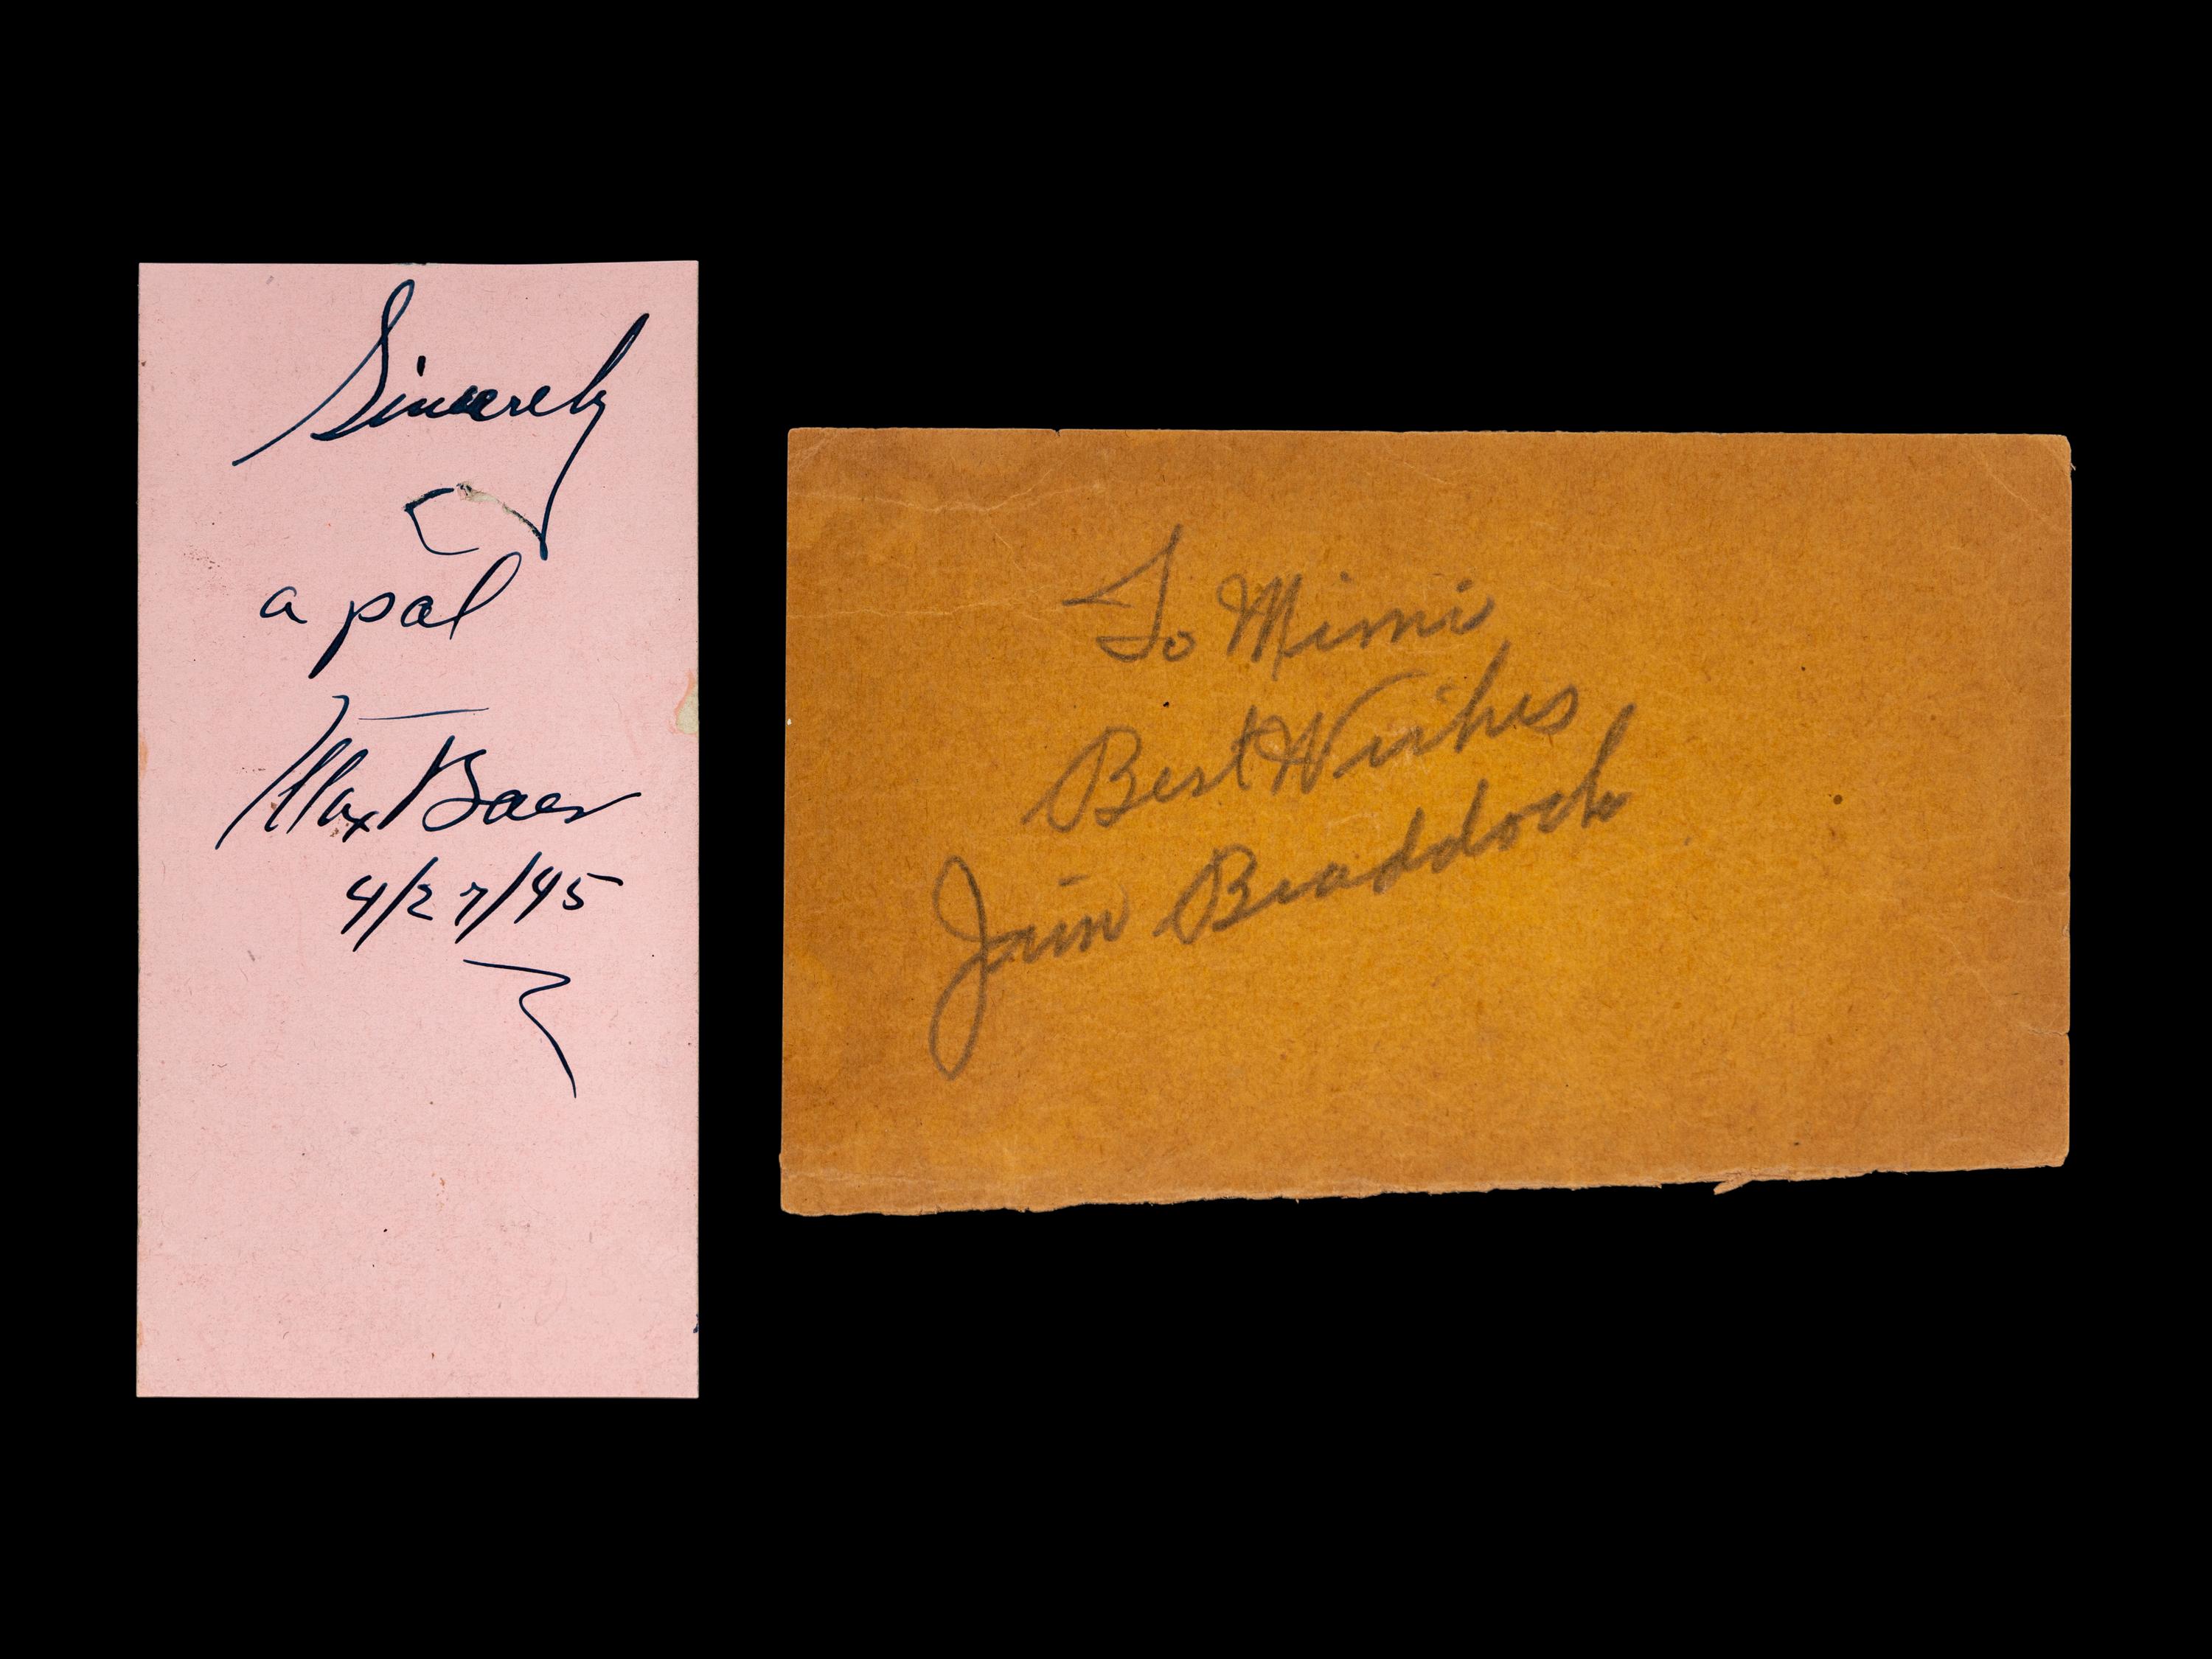 Sincerely
a pal
Max Baer
4/27/45
To Mimi
Best Wishes
Jim Braddock